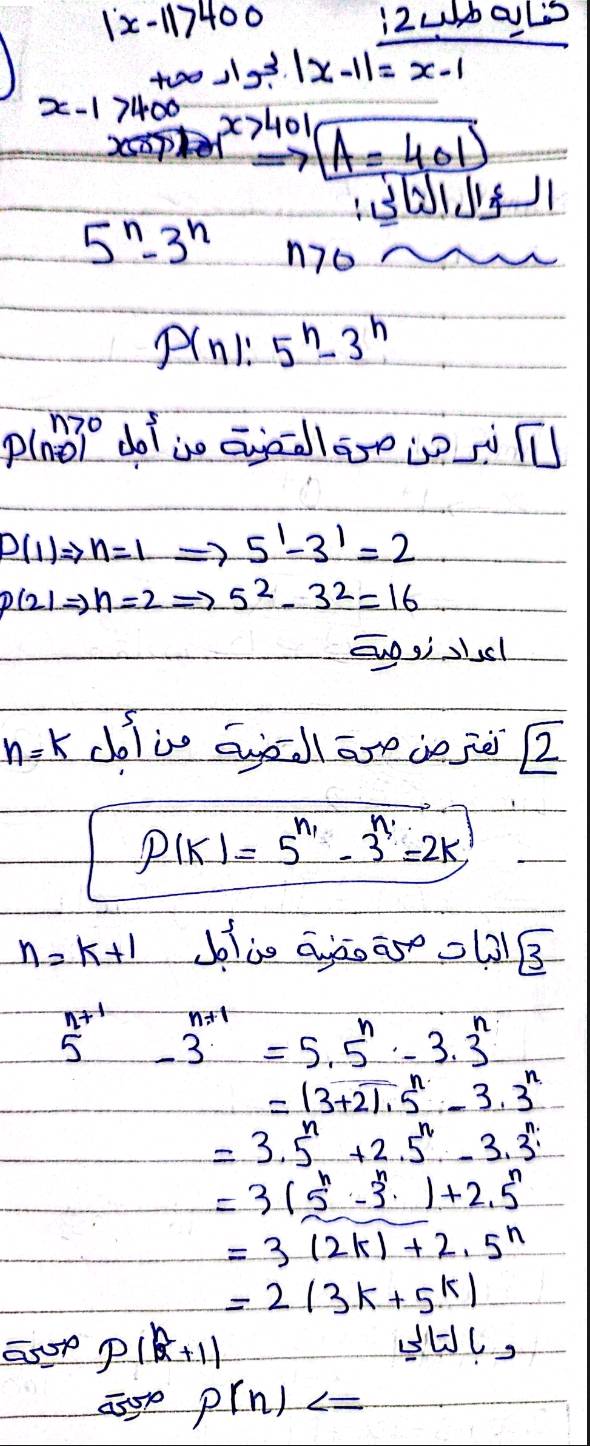 كفاية طلب 2:
|x-1|>400
بجوار +∞ |x-1| = x-1
x-1>400
x>401
=> A = 401
السؤال الثاني:
5ⁿ-3ⁿ n>0
P(n): 5ⁿ-3ⁿ
1 نبرهن صحة القضية من أجل P(n>0) n>0
P(1)=> n=1 => 5¹-3¹=2
P(2)=> n=2 => 5²-3²=16
اعداد زوجية
2 نفترض صحة القضية من أجل n=k
P(k)= 5ⁿ - 3ⁿ = 2k
3 اثبات صحة قضية من أجل n=k+1
5ⁿ⁺¹ - 3ⁿ⁺¹ = 5.5ⁿ - 3.3ⁿ
= (3+2).5ⁿ - 3.3ⁿ
= 3.5ⁿ + 2.5ⁿ - 3.3ⁿ
= 3(5ⁿ-3ⁿ)+2.5ⁿ
= 3(2k)+2.5ⁿ
= 2(3k+5ᵏ)
وبالتالي P(n+1) صحيحة
=> P(n) صحيحة